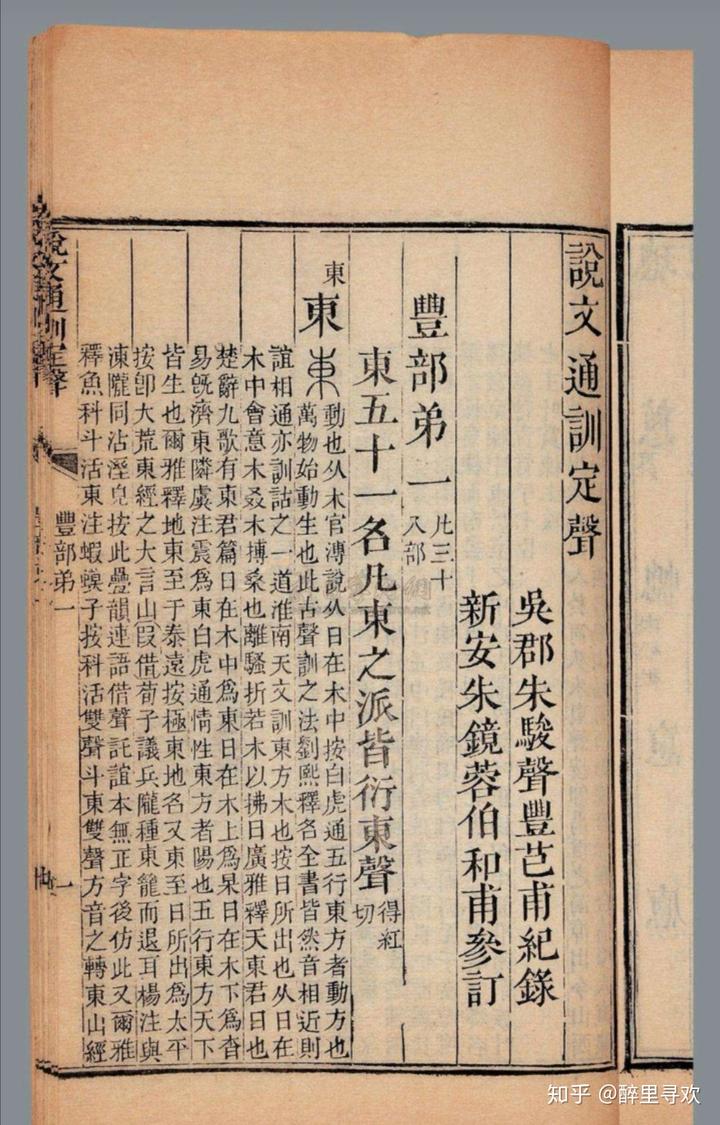 說文通訓定聲
吳郡朱駿聲豐芑甫紀錄
新安朱鏡蓉伯和甫參訂
豐部弟一
凡三十
八部
東五十一名凡東之派皆衍東聲
得紅
切
東
東
動也从木官溥說从日在木中按白虎通五行東方者動方也
萬物始動生也此古聲訓之法劉熙釋名全書皆然音相近則
誼相通亦訓詁之一道淮南天文訓東方木也按日所出也从日在
木中會意木叒木搏桑也離騷折若木以拂日廣雅釋天東君日也
楚辭九歌有東君篇日在木中爲東日在木上爲杲日在木下爲杳
易旣濟東隣虞注震爲東白虎通情性東方者陽也五行東方天下
皆生也爾雅釋地東至于泰遠按極東地名又東至日所出爲太平
按卽大荒東經之大言山叚借荀子議兵隴種東籠而退耳楊注與
凍隴同沾溼皃按此疊韻連語借聲託誼本無正字後仿此又爾雅
釋魚科斗活東注蝦蟆子按科活雙聲斗東雙聲方音之轉東山經
說文通訓定聲
豐部弟一
一
知乎 @醉里寻欢